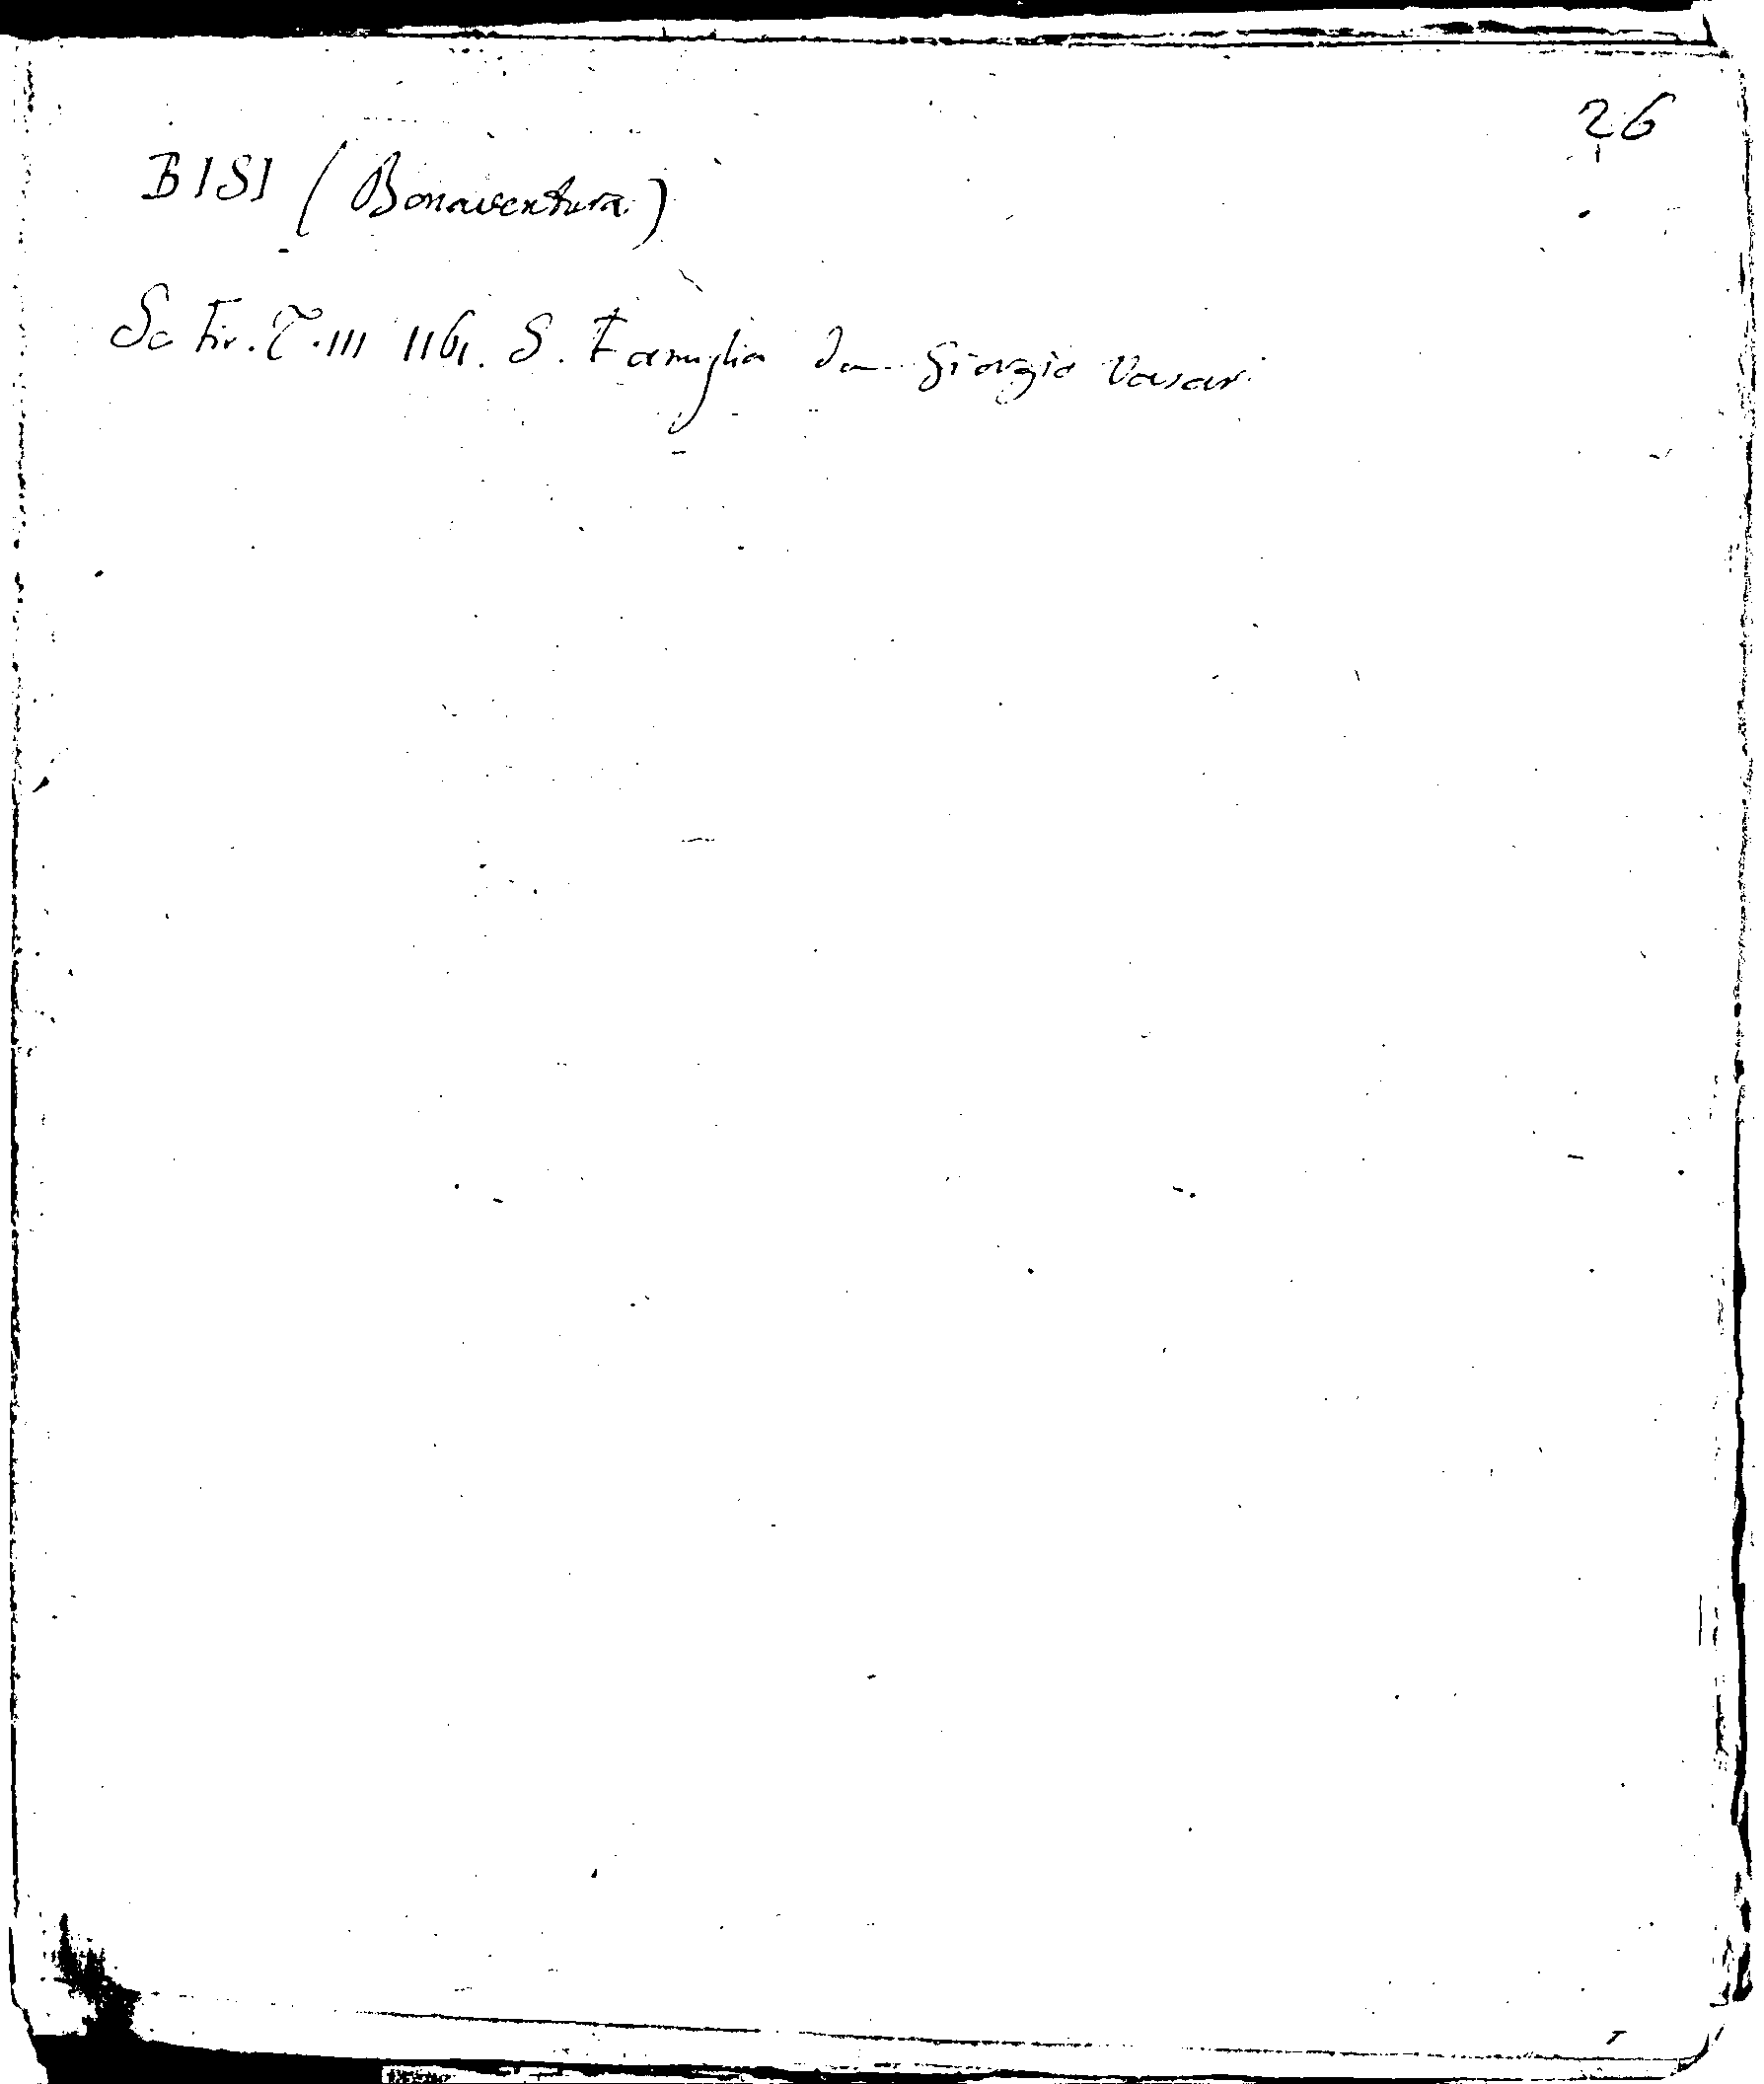 26
BISI (Bonaventura)
Sc Fir. T. III 116. S. Famiglia da Giorgio Vasari